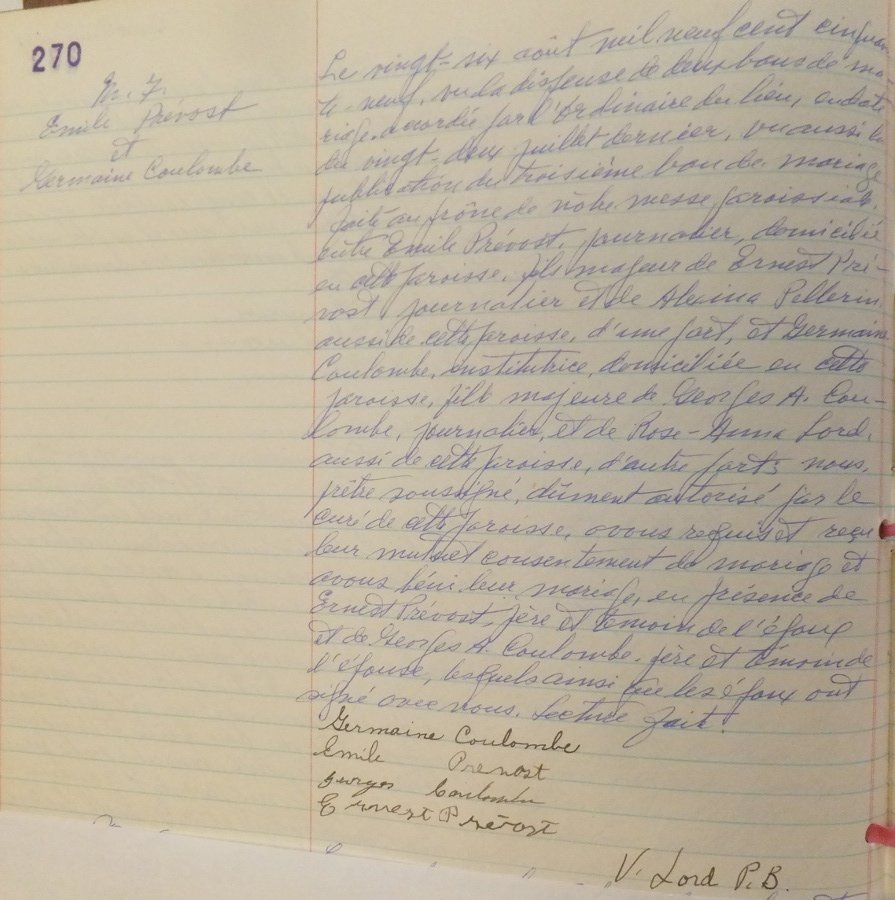 270
M. 7.
Emile Prévost
et
Germaine Coulombe
Le vingt-six août mil neuf cent cinquan
te-neuf, vu la dispense de deux bans de ma
riage accordée par l'Ordinaire du lieu, en date
du vingt-deux juillet dernier, vu aussi la
publication du troisième ban de mariage
faite au prône de notre messe paroissiale,
entre Emile Prévost, journalier, domicilié
en cette paroisse, fils majeur de Ernest Pré-
vost, journalier et de Alexina Pellerin
aussi de cette paroisse, d'une part, et Germaine
Coulombe, institutrice, domiciliée en cette
paroisse, fille majeure de Georges A. Cou-
lombe, journalier, et de Rose-Anna Lord,
aussi de cette paroisse, d'autre part; nous,
prêtre soussigné, dûment autorisé par le
curé de cette paroisse, avons requis et reçu
leur mutuel consentement de mariage et
avons béni leur mariage, en présence de
Ernest Prévost, père et témoin de l'époux
et de Georges A. Coulombe, père et témoin de
l'épouse, lesquels ainsi que les époux ont
signé avec nous. Lecture faite.
Germaine Coulombe
Emile Prevost
Georges Coulombe
Ernest Prévost
V. Lord P.B.